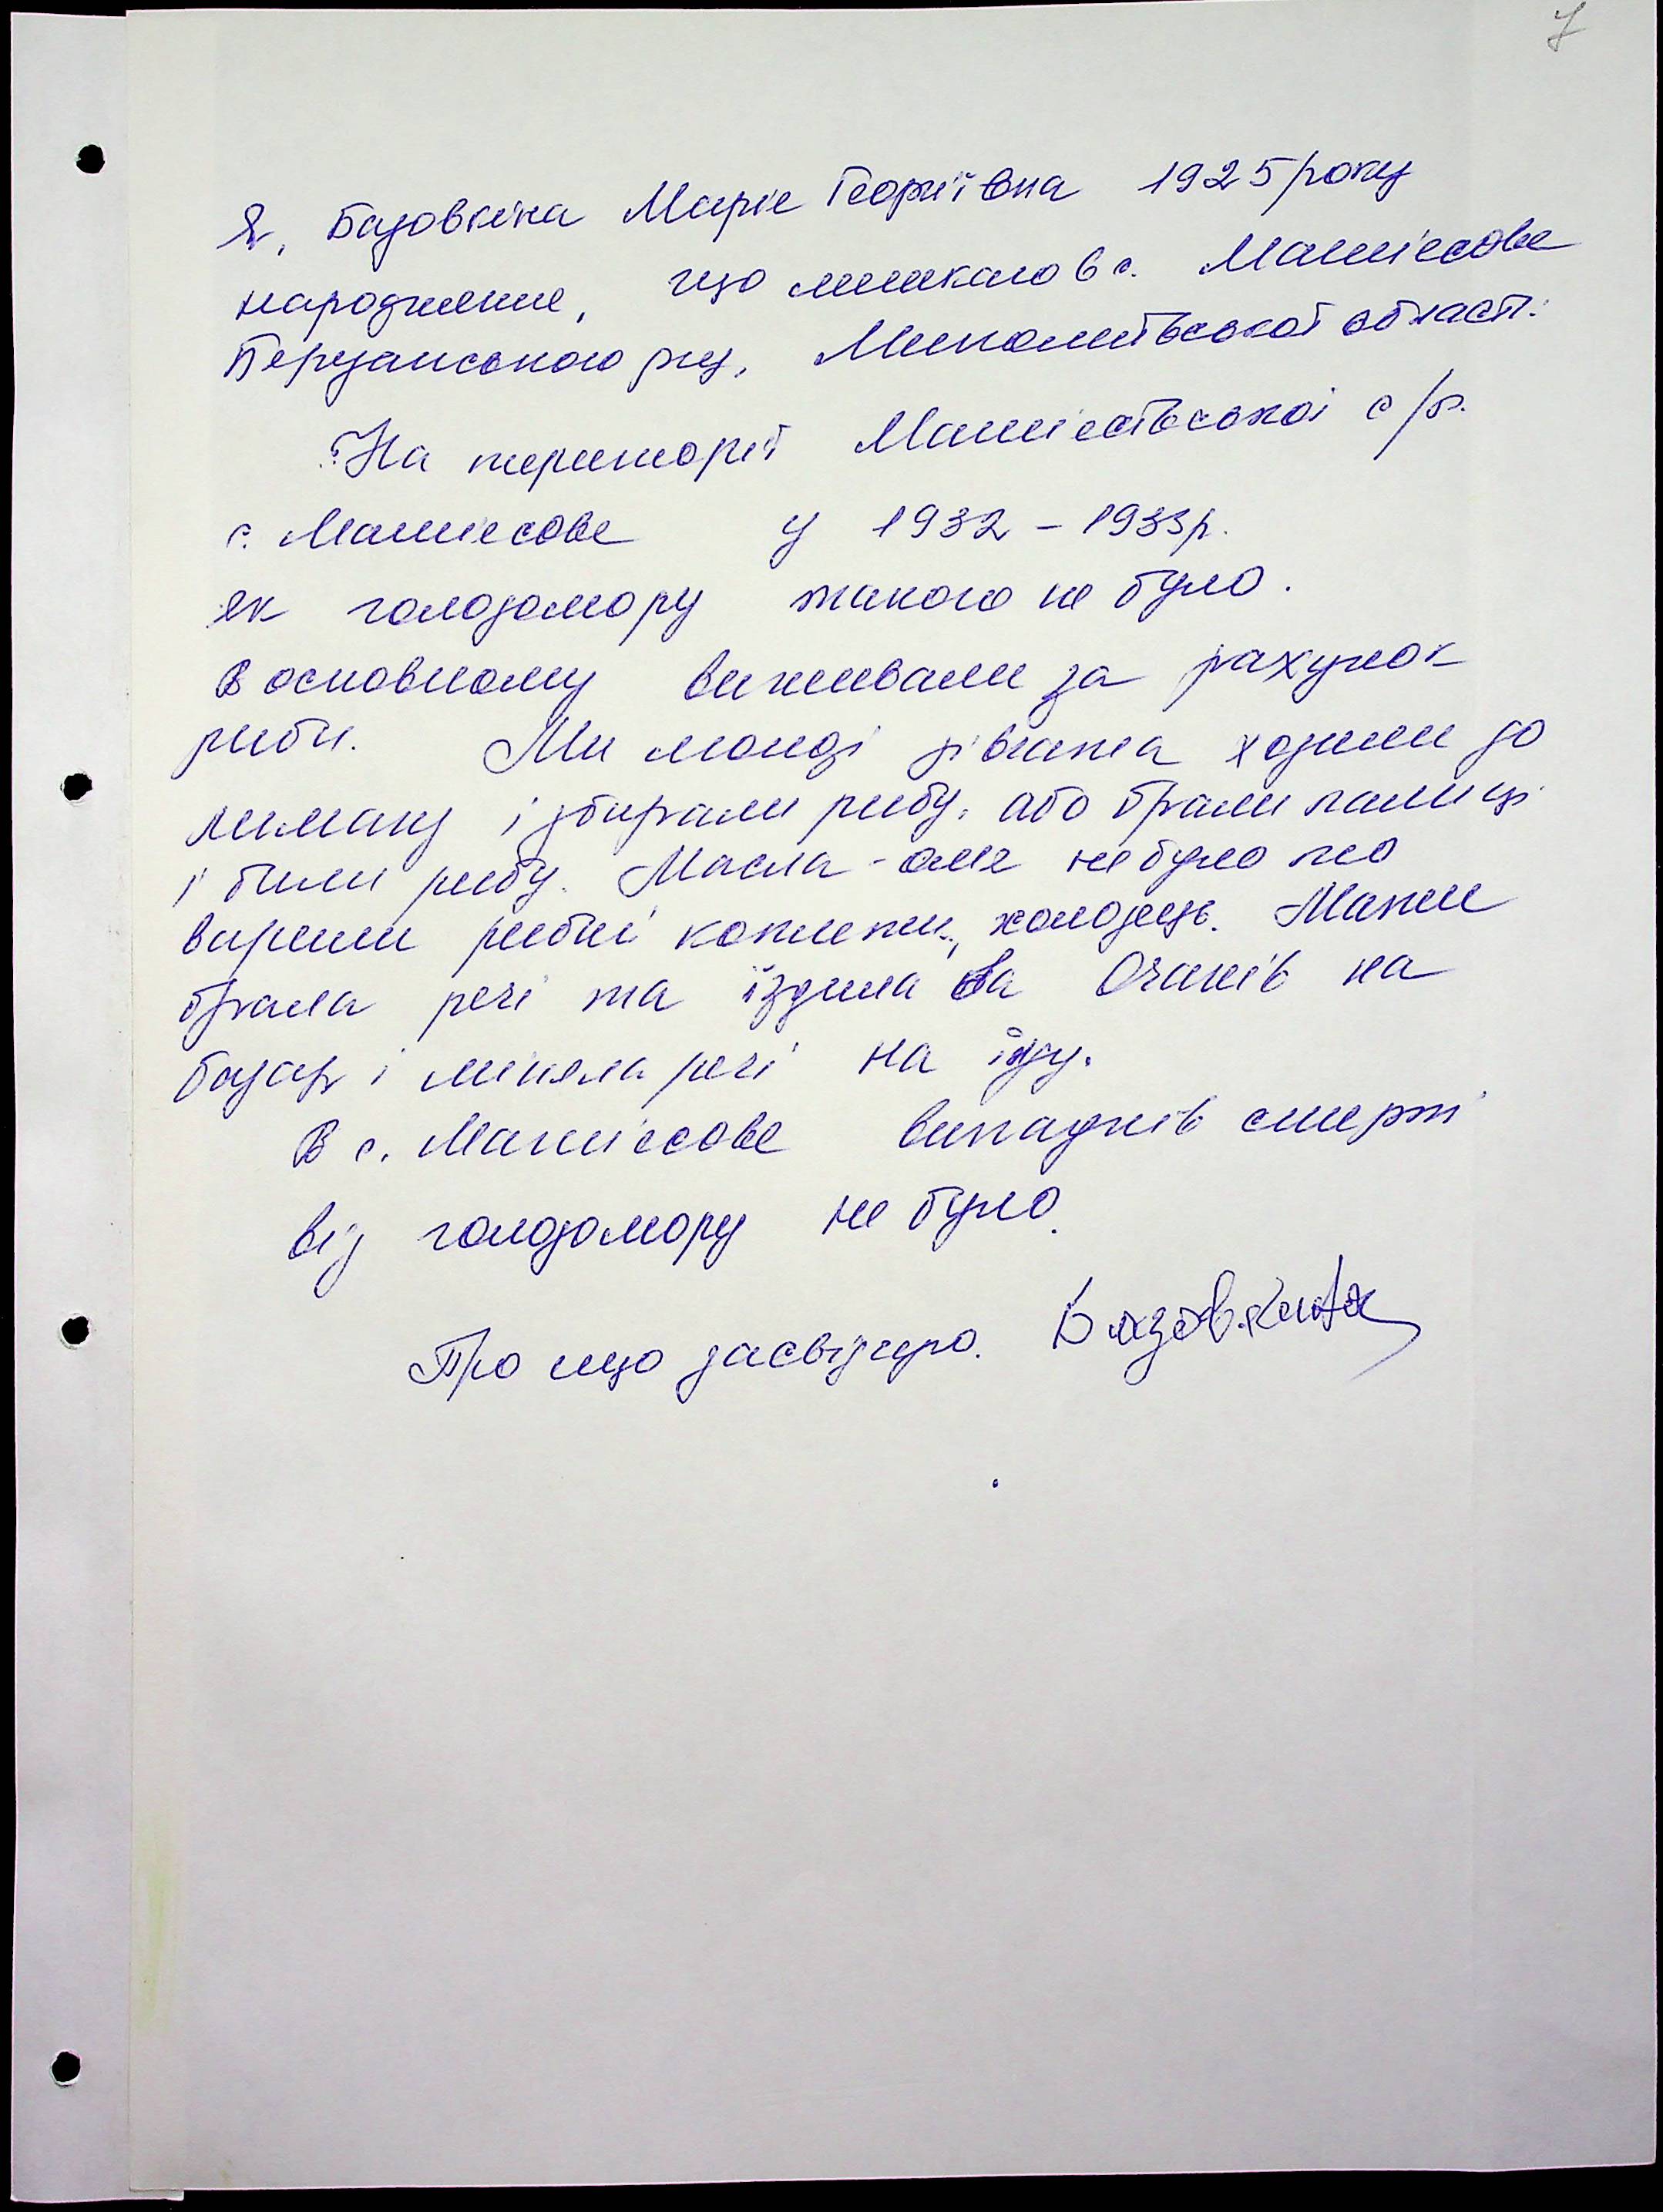 7
Я, Базовкіна Марія Георгіївна 1925 року
народження, що мешкаю в с. Матіясове
Березанського р-ну, Миколаївської області.
На території Матіясівської с/р.
с. Матіясове у 1932 – 1933р.
як голодомору такого не було.
В основному виживали за рахунок
риби. Ми молоді дівчата ходили до
лиману і збирали рибу, або брали палиці
і били рибу. Масла - олії не було то
варили рибні котлети, холодець. Мати
брала речі та їздила в Очаків на
базар і міняла речі на їжу.
В с. Матіясове випадків смерті
від голодомору не було.
Про що засвідчую. Базовкина